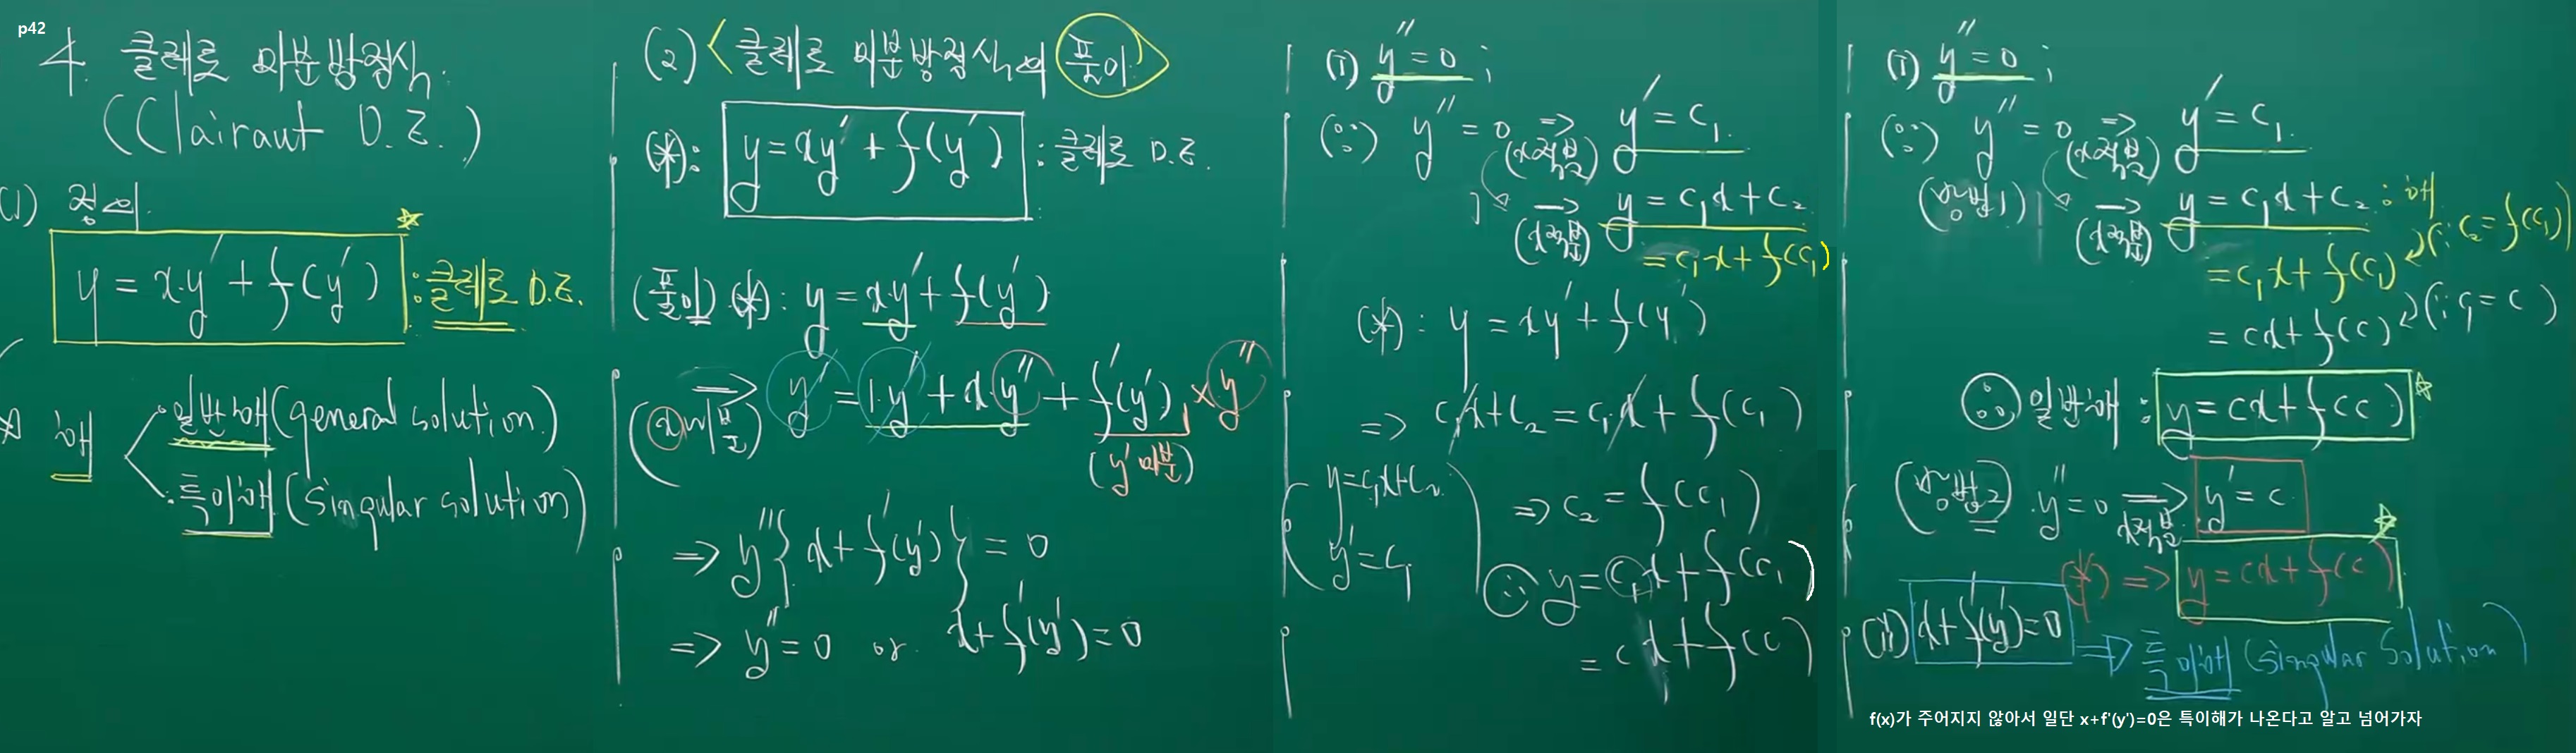 p42
4. 클레로 미분방정식.
(Clairaut D.E.)
(1) 정의.
y = x·y′ + f(y′) : 클레로 D.E.
* 해
일반해(general solution)
특이해(singular solution)
(2) <클레로 미분방정식의 풀이>
(*): y = xy′ + f(y′) : 클레로 D.E.
(풀이) (*): y = xy′ + f(y′)
(x미분) ⇒ y′ = 1·y′ + x·y″ + f′(y′) × y″
(y′미분)
⇒ y″{x + f′(y′)} = 0
⇒ y″ = 0 or x + f′(y′) = 0
(i) y″ = 0 ;
(∵) y″ = 0 ⇒ (x적분) y′ = c₁.
→ (x적분) y = c₁x + c₂
= c₁x + f(c₁)
(*) : y = xy′ + f(y′)
⇒ c₁x + c₂ = c₁x + f(c₁)
(y = c₁x + c₂
y′ = c₁)
⇒ c₂ = f(c₁)
∴ y = c₁x + f(c₁)
= cx + f(c)
(i) y″ = 0 ;
(∵) y″ = 0 ⇒ (x적분) y′ = c₁.
(방법1) → (x적분) y = c₁x + c₂ : 해
= c₁x + f(c₁) (∵ c₂ = f(c₁))
= cx + f(c) (∵ c₁ = c)
∴ 일반해 : y = cx + f(c)
(방법2) y″ = 0 ⇒ x적분 y′ = c
(*) ⇒ y = cx + f(c)
(ii) x + f′(y′) = 0 ⇒ 특이해 (singular solution)
f(x)가 주어지지 않아서 일단 x+f'(y')=0은 특이해가 나온다고 알고 넘어가자